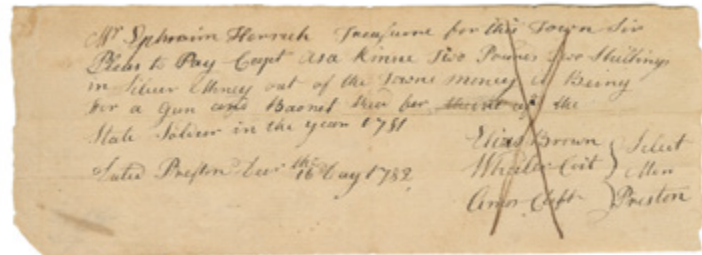 Mr Ephraim Herrick Treasurere for this Town Sir
Pleas to Pay Capt Asa Kinne Two Pounds Two Shillings
in Silver Money out of the Towne money it Being
for a Gun and Baonet for the
State Soldier in the year 1781
Dated Preston Decr the 16 Day 1782
Elias Brown
Wheeler Coit
Amos Clift
Select
Men
Preston